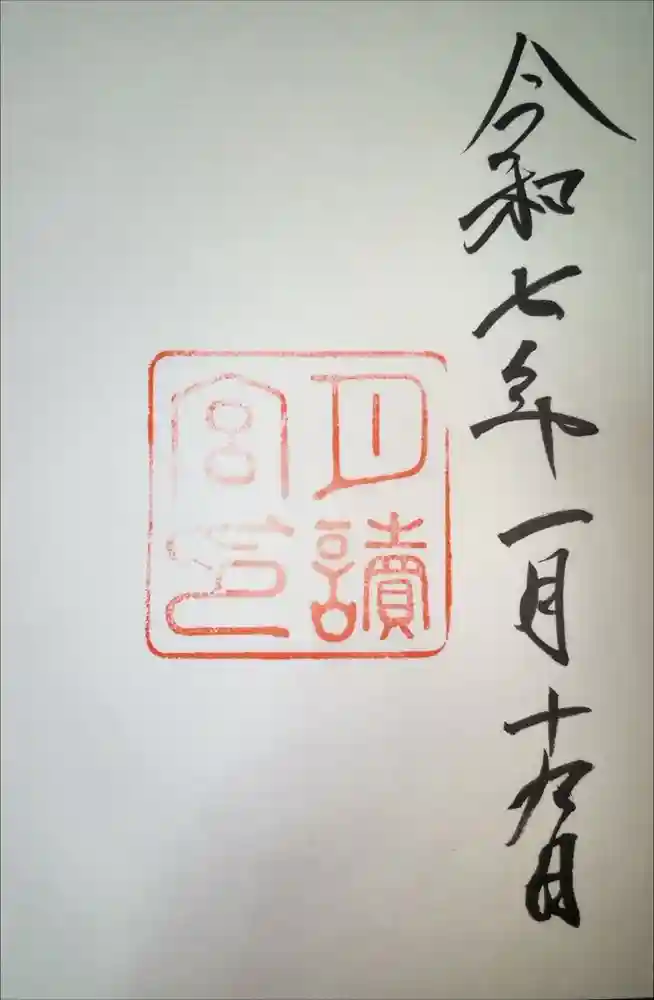 令和七年一月十九日
月讀
宮印